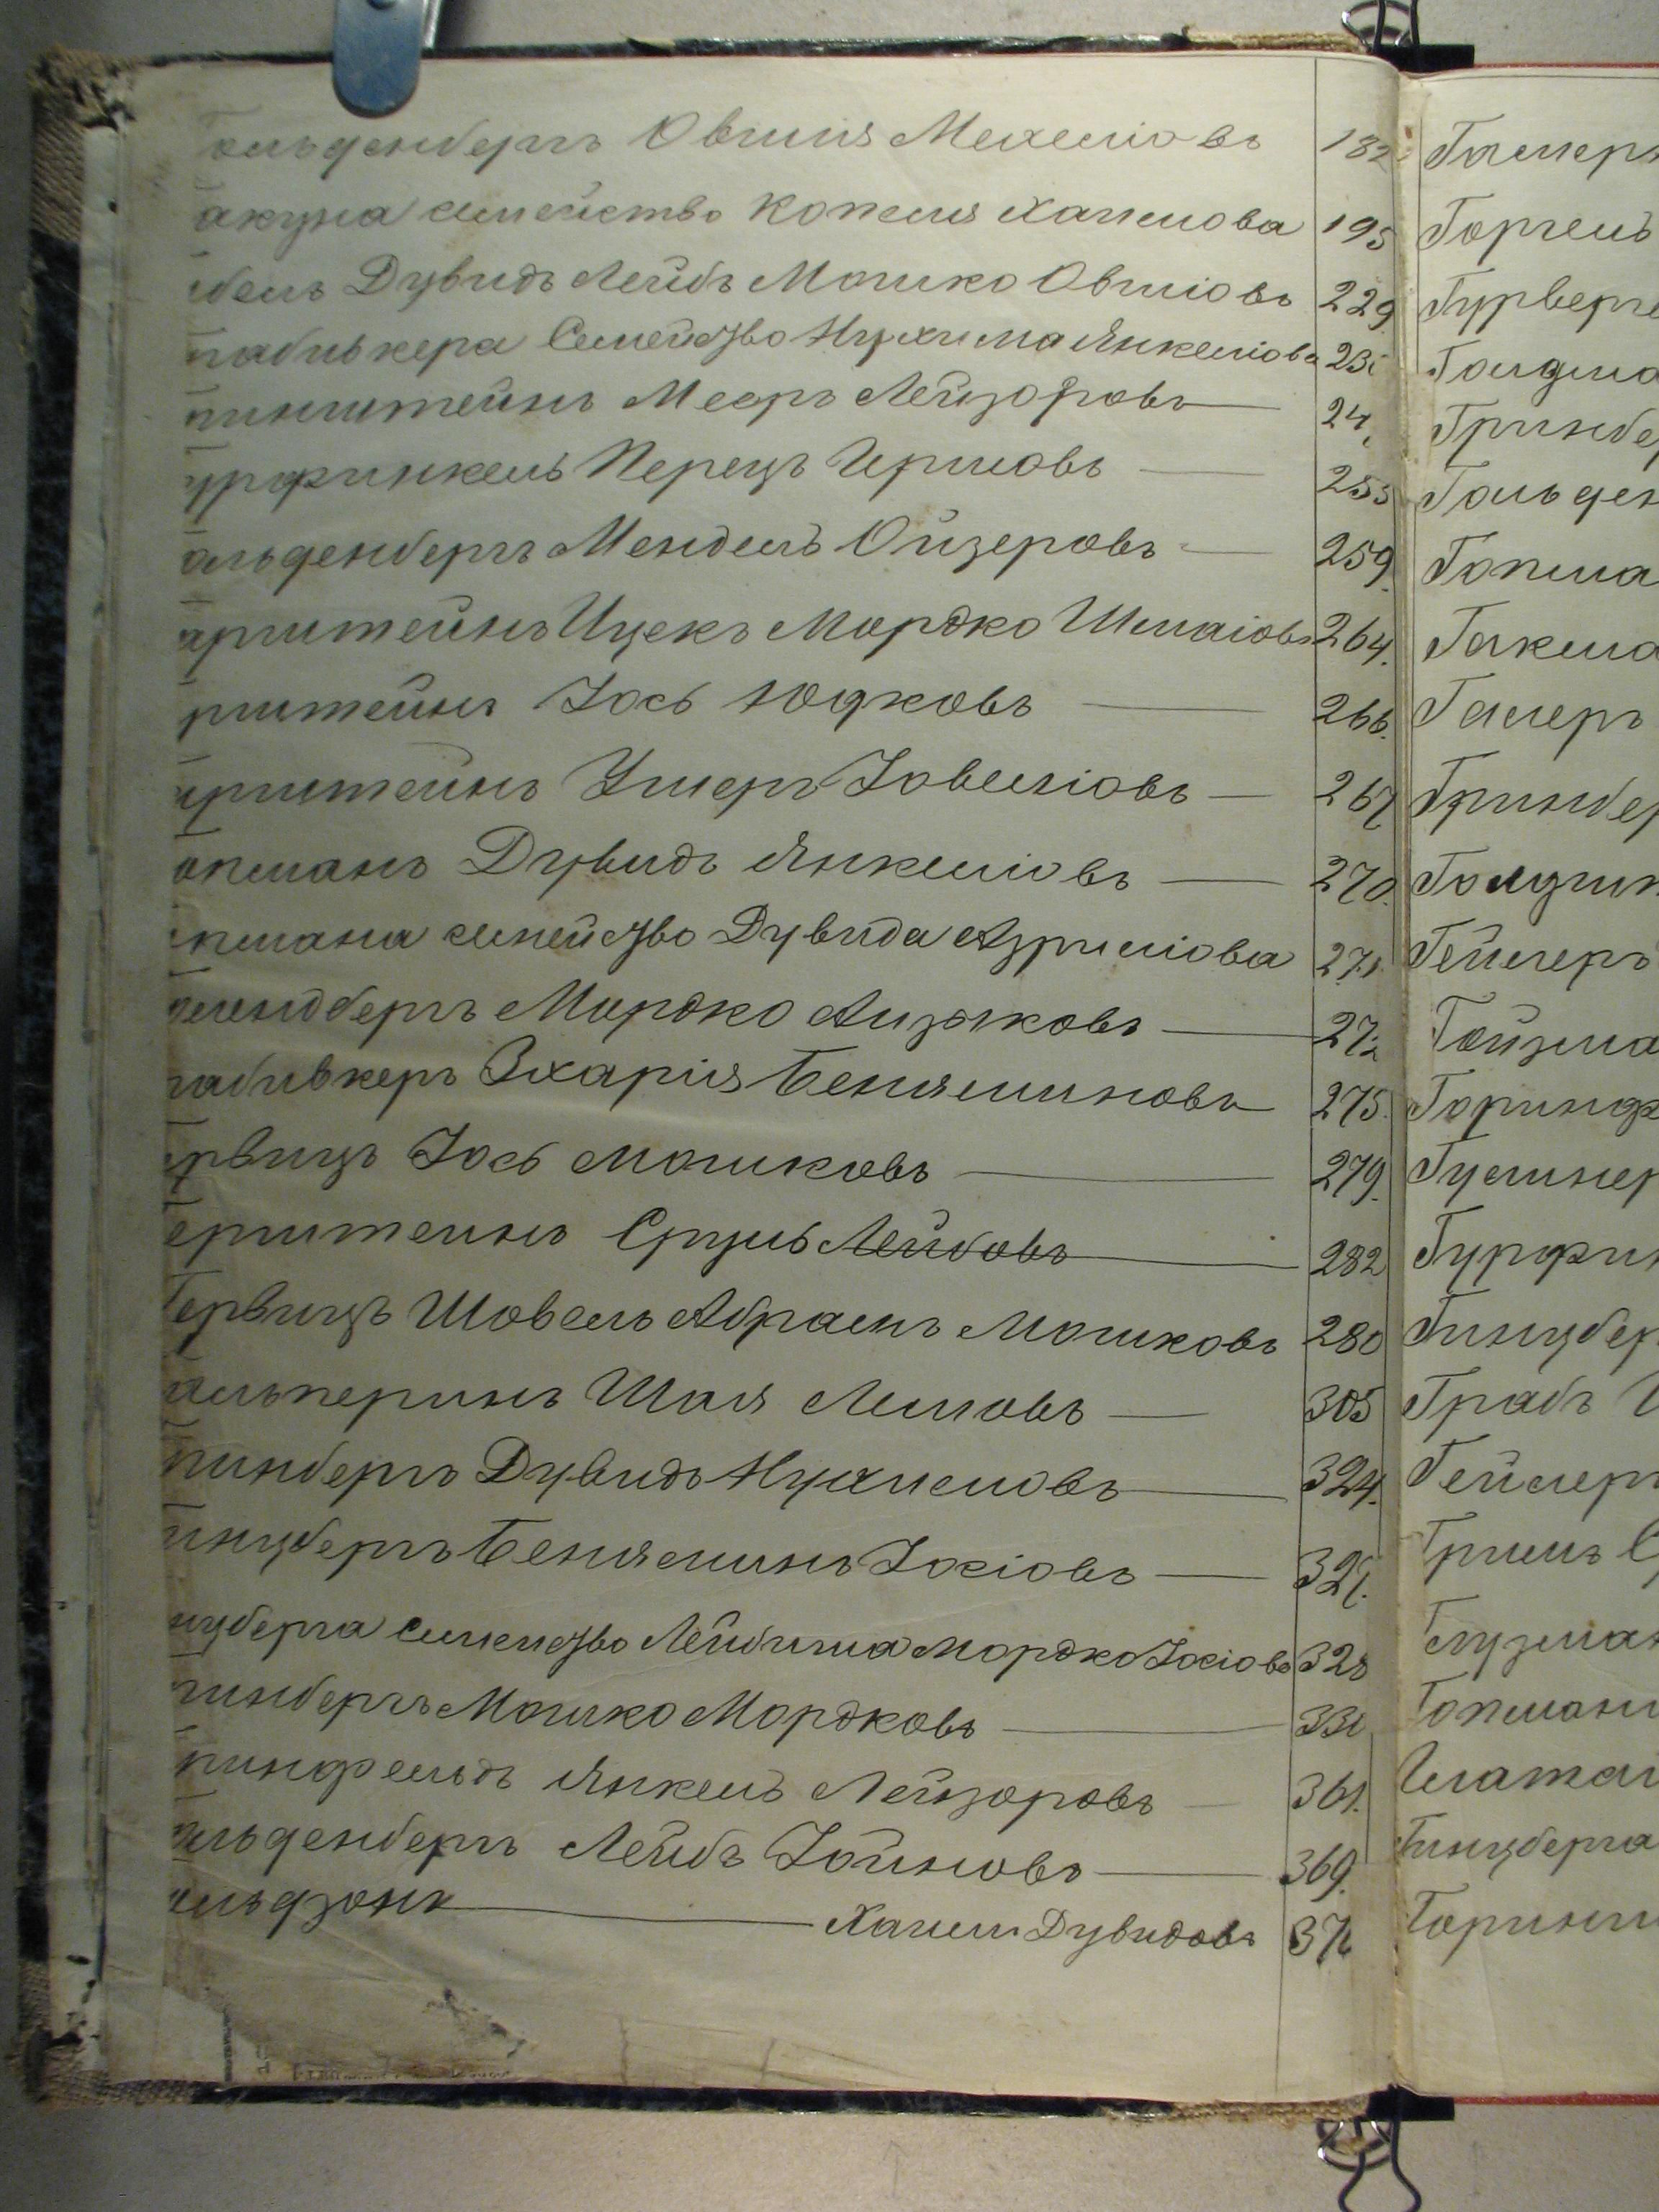 Гольденбергъ Овшия Мехеліовъ 182
акуна семейство Копеля Хаимова 195
ибель Дувидъ Лейбъ Мошко Овшіовъ 229
рабинькера Семейство Нухима Янкеліова
инштейнъ Мееръ Лейзоровъ
урфинкель Перецъ Чермовъ 255
альденбергъ Мендель Ойзеровъ 259.
арштейнъ Ицекъ Мордко Шмаіовъ 264.
рштейнъ Іось Юдковъ 266.
ерштейнъ Ушеръ Іовеліовъ 267
опманъ Дувидъ Янкеліовъ 270.
опмана семейство Дувида Азриліова 271.
Мордко Аизиковъ 272
рабивкеръ Зхарія Беняминовъ 275.
ервицъ Іось Мошковъ 279.
ерштейнъ Сруль Лейбовъ 282
Гервицъ Шовель Абрамъ Мошковъ 280
альперинъ Шая Лемовъ 305
ринбергъ Дувидъ Нухимовъ 324.
инцбергъ Беняминъ Іосіовъ
нцберга семейство Лейбиша Мордко Іосіова 328
ринбергъ Мошко Мордковъ
ринфельдъ Янкель Лейзоровъ 361.
альденбергъ Лейбъ Іойновъ 369.
ольдзонъ Хаимъ Дувидовъ
Галперъ
Горгель
Гурверг
Голдма
Гринбе
Гольден
Гопма
Гакма
Галеръ
Гринбер
Голдши
Гейлеръ
Гойзма
Горинф
Гуслинер
Гурфин
Гинцбер
Грабъ
Гейлеръ
Гриль
Глузман
Гопманъ
Гинцберга